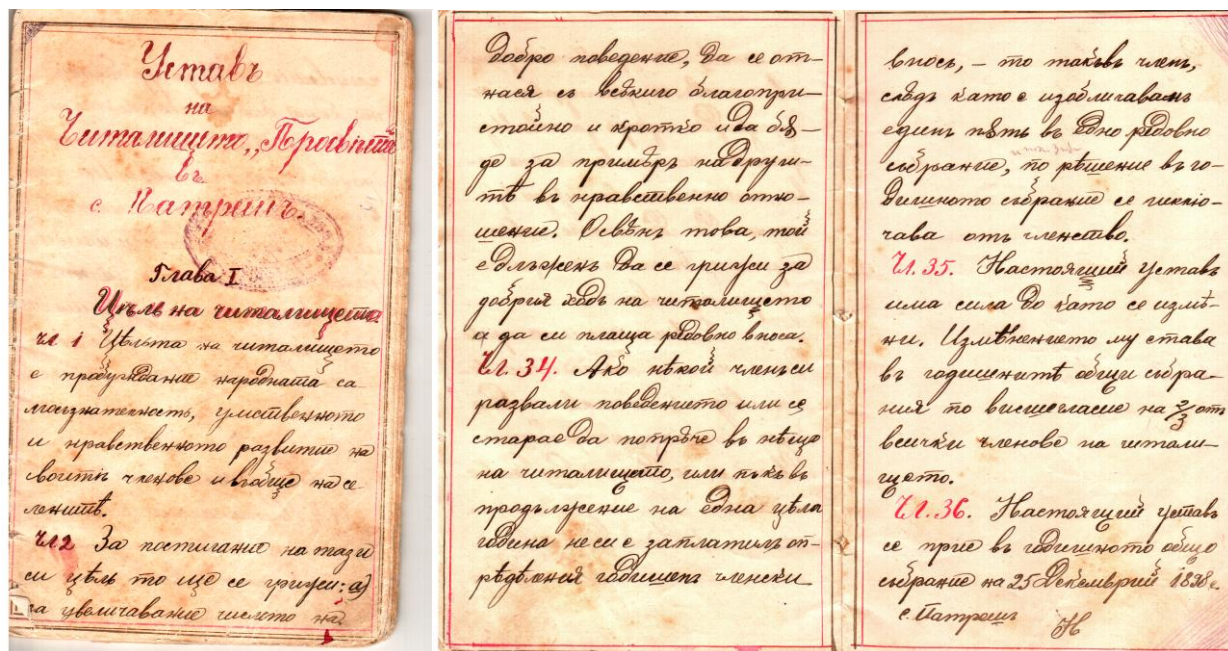 Уставъ
на
Читалището „Просвѣта
въ
с. Патрешъ.
Глава I
Цѣль на читалището.
Чл 1 Цѣльта на читалището
е пробуждание народната са
мосъзнателность, умственното
и нравственното развитие на
своитѣ членове и въобще на се
ленитѣ.
Чл 2 За постигание на тази
си цѣль то ще се грижи: а)
за увеличавание числото на
добро поведение, да се от-
нася съ всѣкиго благопри-
стойно и кротко и да бѫ-
де за примѣръ на други-
тѣ въ нравственно отно-
шение. Освѣнъ това, той
е длъженъ да се грижи за
добрия ходъ на читалището
а да си плаща рѣдовно вноса.
Чл. 34. Ако нѣкой членъ си
развали поведението или се
старае да попрѣче въ нѣщо
на читалището, или пъкъ въ
продължение на една цѣла
година не си е заплатилъ оп-
рѣдѣлений годишенъ членски
вносъ, – то такъвъ членъ,
слѣдъ като е изобличаванъ
единъ пѫть въ едно рѣдовно
събрание, по рѣшение въ го-
дишното събрание се исклю-
чава отъ членство.
Чл. 35. Настоящий уставъ
има сила до като се измѣ-
ни. Измѣнението му става
въ годишнитѣ общи събра-
ния по висшегласие на 2/3 отъ
всички членове на читали-
щето.
Чл. 36. Настоящий уставъ
се прие въ годишното общо
събрание на 25 Декемврий 1898 г.
с. Патрешъ